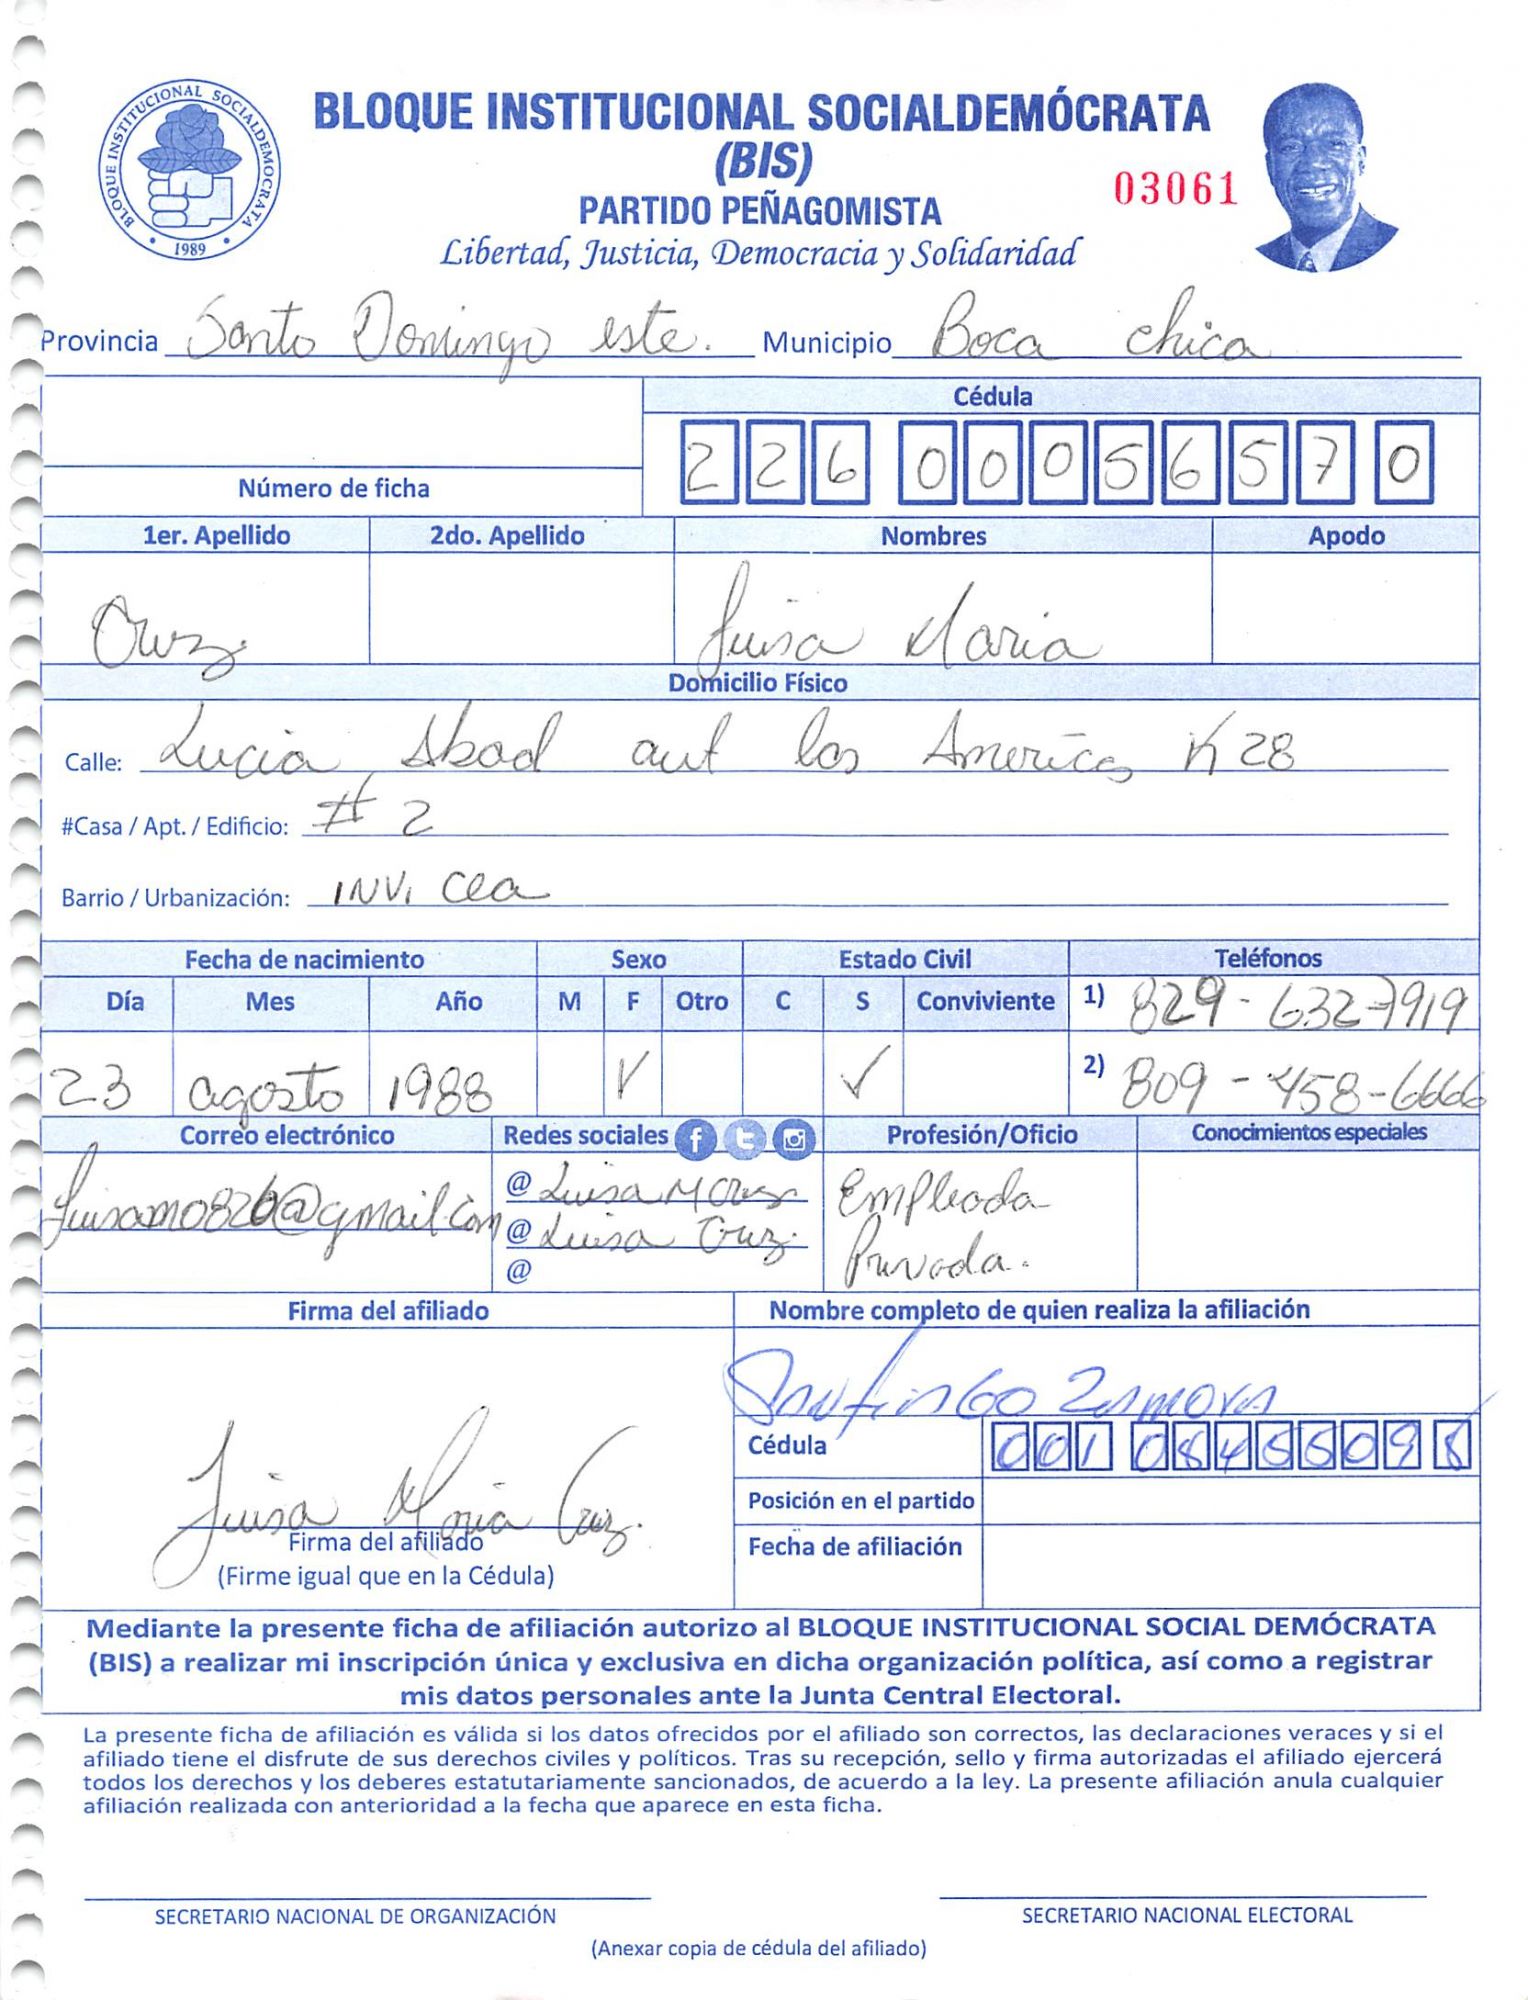 BLOQUE INSTITUCIONAL SOCIALDEMOCRATA
1989
BLOQUE INSTITUCIONAL SOCIALDEMÓCRATA
(BIS)
PARTIDO PEÑAGOMISTA
03061
Libertad, Justicia, Democracia y Solidaridad
Provincia Santo Domingo este. Municipio Boca chica
Cédula
226 0005657 0
Número de ficha
1er. Apellido 2do. Apellido Nombres Apodo
Cruz. Luisa Maria
Domicilio Físico
Calle: Lucia Abad aut las Americas K 28
#Casa / Apt. / Edificio: # 2
Barrio / Urbanización: INVI cea
Fecha de nacimiento Sexo Estado Civil Teléfonos
Día Mes Año M F Otro C S Conviviente 1) 829-632-7919
23 agosto 1988 ✓ ✓ 2) 809-458-6666
Correo electrónico Redes sociales Profesión/Oficio Conocimientos especiales
Luisam0826@gmail.com @Luisa M Cruz Empleada
@Luisa Cruz. Privada.
@
Firma del afiliado Nombre completo de quien realiza la afiliación
Santiago Zamora
Cédula 001 0845509 8
Luisa Maria Cruz.
Posición en el partido
Firma del afiliado
Fecha de afiliación
(Firme igual que en la Cédula)
Mediante la presente ficha de afiliación autorizo al BLOQUE INSTITUCIONAL SOCIAL DEMÓCRATA
(BIS) a realizar mi inscripción única y exclusiva en dicha organización política, así como a registrar
mis datos personales ante la Junta Central Electoral.
La presente ficha de afiliación es válida si los datos ofrecidos por el afiliado son correctos, las declaraciones veraces y si el
afiliado tiene el disfrute de sus derechos civiles y políticos. Tras su recepción, sello y firma autorizadas el afiliado ejercerá
todos los derechos y los deberes estatutariamente sancionados, de acuerdo a la ley. La presente afiliación anula cualquier
afiliación realizada con anterioridad a la fecha que aparece en esta ficha.
SECRETARIO NACIONAL DE ORGANIZACIÓN SECRETARIO NACIONAL ELECTORAL
(Anexar copia de cédula del afiliado)